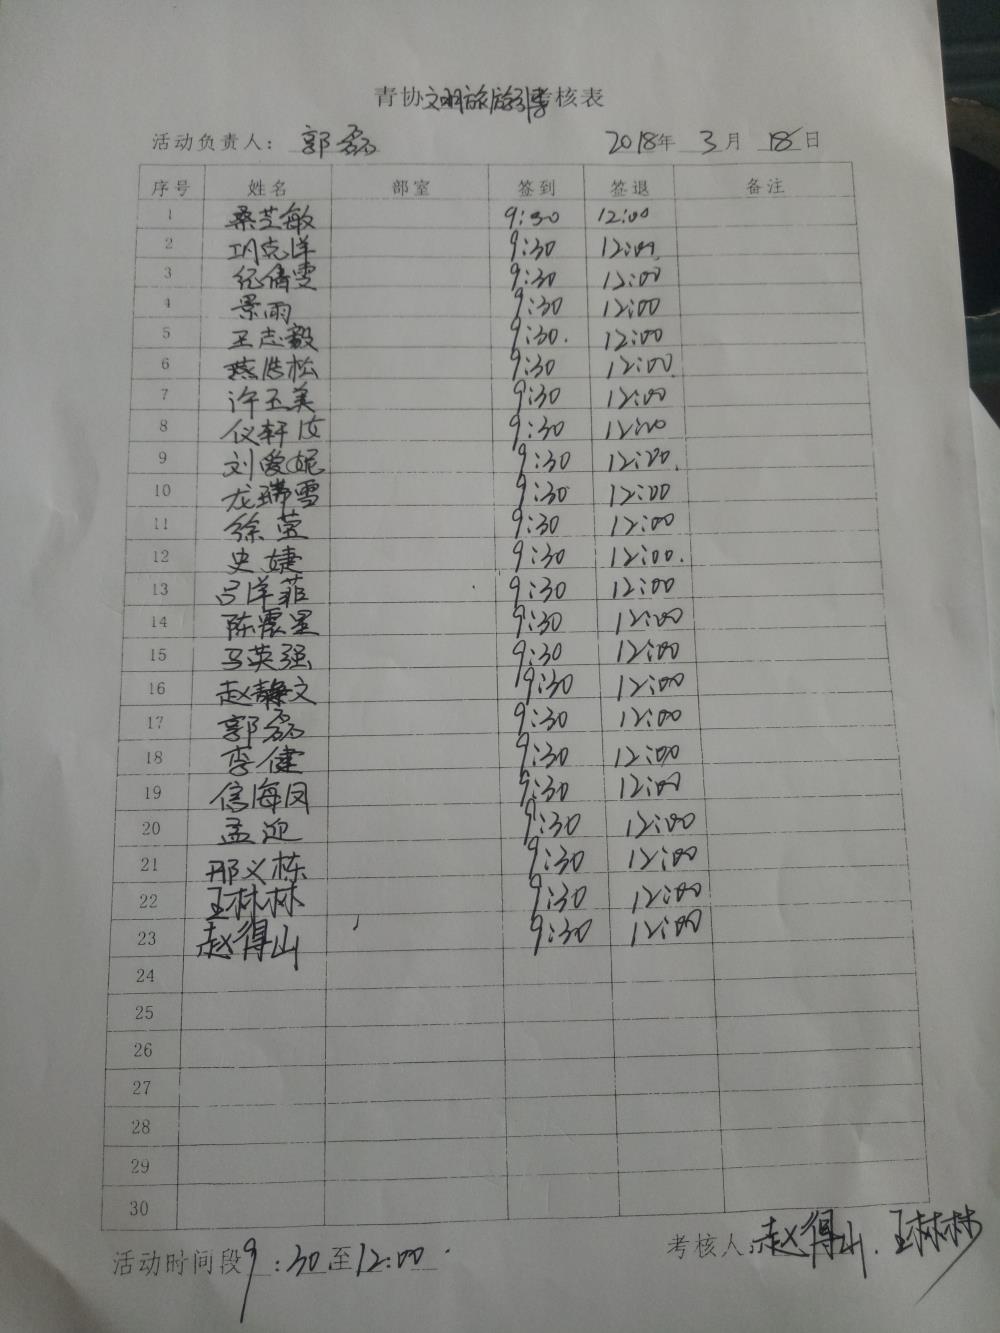 青协文明旅途引导考核表
活动负责人: 郭磊 2018年 3月 18日
序号 姓名 部室 签到 签退 备注
1 桑芝敏 9:30 12:00
2 巩克洋 9:30 12:00
3 纪倩雯 9:30 12:00
4 景雨 9:30 12:00
5 王志毅 9:30. 12:00
6 燕浩松 9:30 12:00
7 许玉美 9:30 12:00
8 仪轩汝 9:30 12:00
9 刘爱妮 9:30 12:00.
10 龙瑞雪 9:30 12:00
11 徐莹 9:30 12:00
12 史婕 9:30 12:00.
13 吕洋菲 9:30 12:00
14 陈震星 9:30 12:00
15 马英强 9:30 12:00
16 赵静文 9:30 12:00
17 郭磊 9:30 12:00
18 李健 9:30 12:00
19 信海凤 9:30 12:00
20 孟迎 9:30 12:00
21 邢义栋 9:30 12:00
22 王林林 9:30 12:00
23 赵得山 9:30 12:00
24
25
26
27
28
29
30
活动时间段 9:30至12:00 考核人:赵得山、王林林